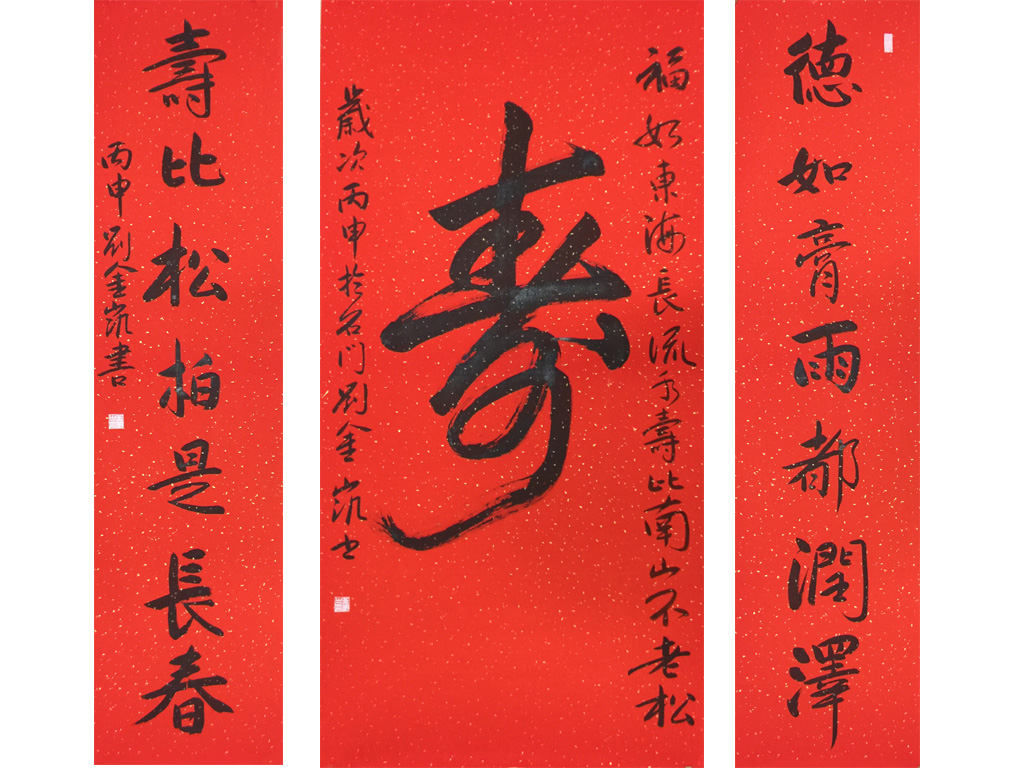 德如膏雨都潤澤
福如東海長流水壽比南山不老松
寿
歲次丙申於名門劉金凱書
壽比松柏是長春
丙申劉金凱書